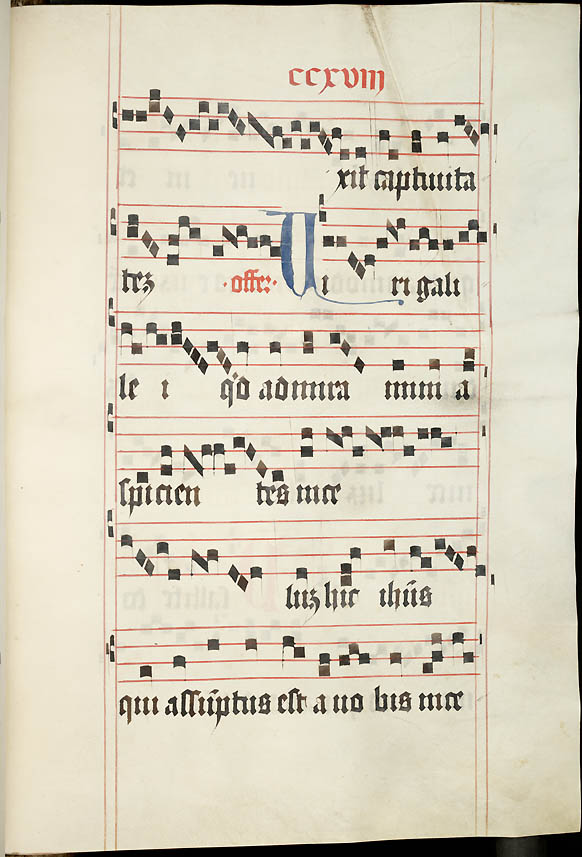 ccxviii
xit captiuita
tez ·offer· Uiri gali
le i qd admira mini a
spicien tes in ce
luz hic ihūs
qui assūptus est a uo bis in ce